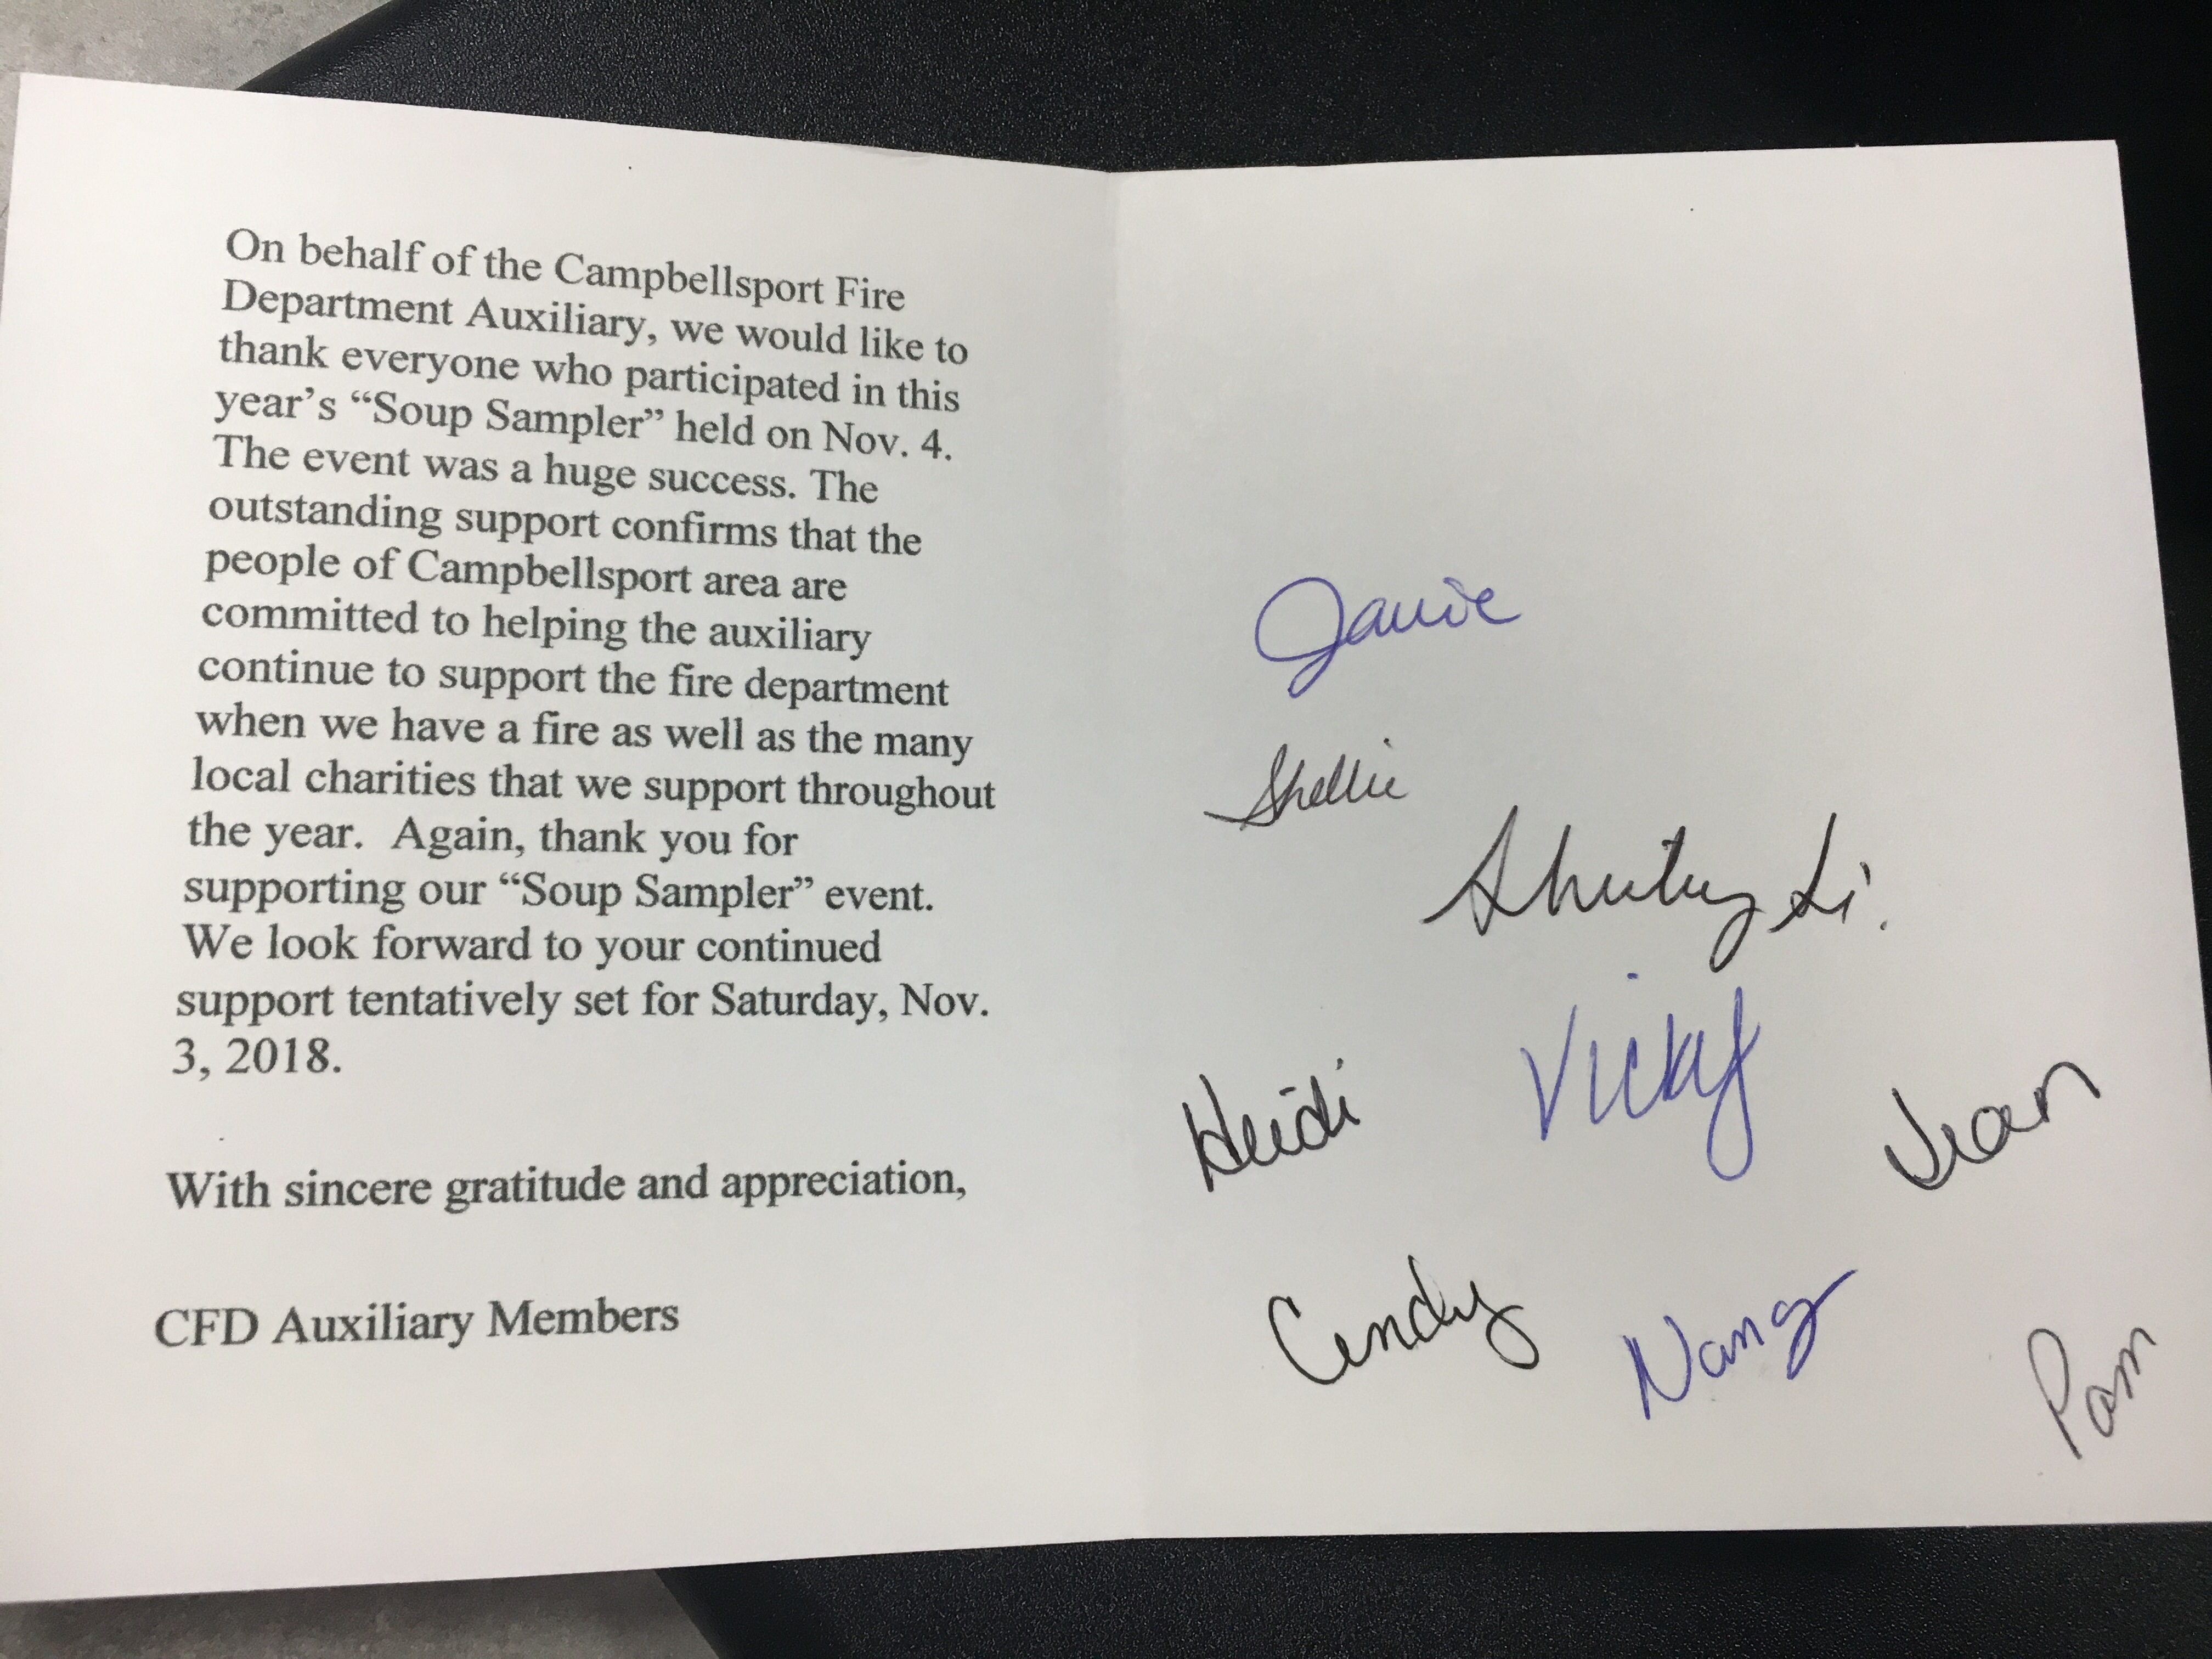 On behalf of the Campbellsport Fire
Department Auxiliary, we would like to
thank everyone who participated in this
year's “Soup Sampler” held on Nov. 4.
The event was a huge success. The
outstanding support confirms that the
people of Campbellsport area are
committed to helping the auxiliary
continue to support the fire department
when we have a fire as well as the many
local charities that we support throughout
the year.  Again, thank you for
supporting our “Soup Sampler” event.
We look forward to your continued
support tentatively set for Saturday, Nov.
3, 2018.
With sincere gratitude and appreciation,
CFD Auxiliary Members
Janice
Shellie
Vicky
Heidi
Jean
Cindy
Nancy
Pam